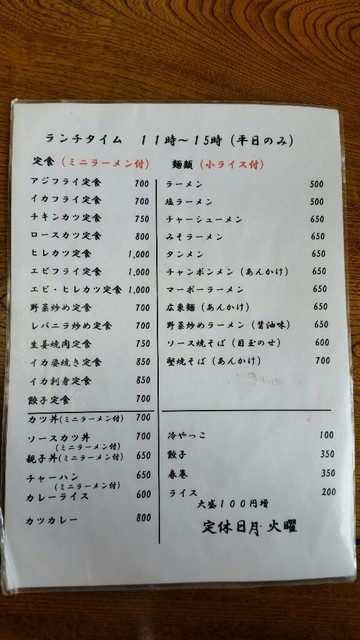 ランチタイム 11時〜15時(平日のみ)
定食(ミニラーメン付)
アジフライ定食 700
イカフライ定食 700
チキンカツ定食 750
ロースカツ定食 800
ヒレカツ定食 1,000
エビフライ定食 1,000
エビ・ヒレカツ定食 1,000
野菜炒め定食 700
レバニラ炒め定食 700
生姜焼肉定食 750
イカ姿焼き定食 850
イカ刺身定食 850
餃子定食 700
カツ丼(ミニラーメン付) 700
ソースカツ丼 700
(ミニラーメン付)
親子丼(ミニラーメン付) 650
チャーハン 650
(ミニラーメン付)
カレーライス 600
カツカレー 800
麺類(小ライス付)
ラーメン 500
塩ラーメン 500
チャーシューメン 650
みそラーメン 650
タンメン 650
チャンポンメン(あんかけ) 650
マーボーラーメン 650
広東麺(あんかけ) 650
野菜炒めラーメン(醤油味) 650
ソース焼そば(目玉のせ) 600
堅焼そば(あんかけ) 700
冷やっこ 100
餃子 350
春巻 350
ライス 200
大盛100円増
定休日月火曜